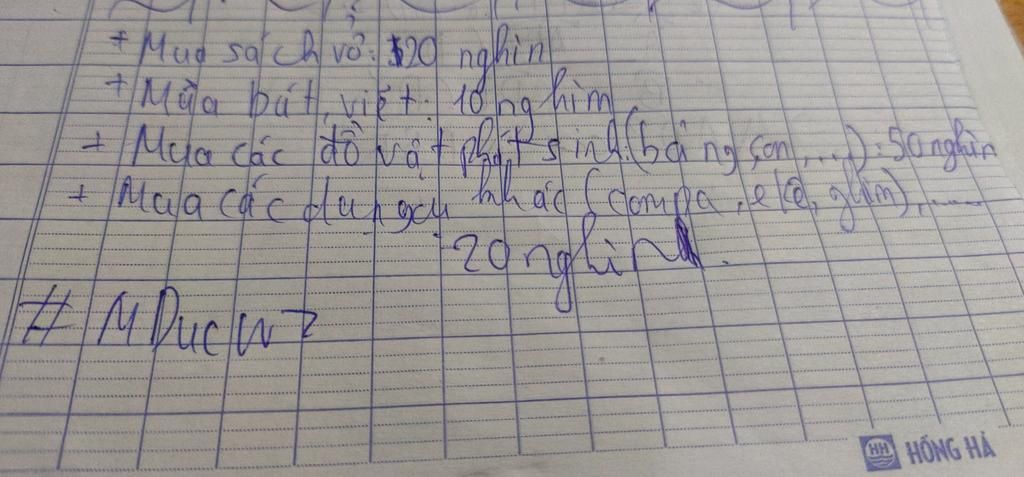 + Mua sách vở: 20 nghìn
+ Mua bút, viết: 10 nghìn
+ Mua các đồ vật phát sinh (băng, son, ...): 50 nghìn
+ Mua các dụng cụ khác (compa, eke, ghim), .....
20 nghìn.
# MDucw
HH HỒNG HÀ